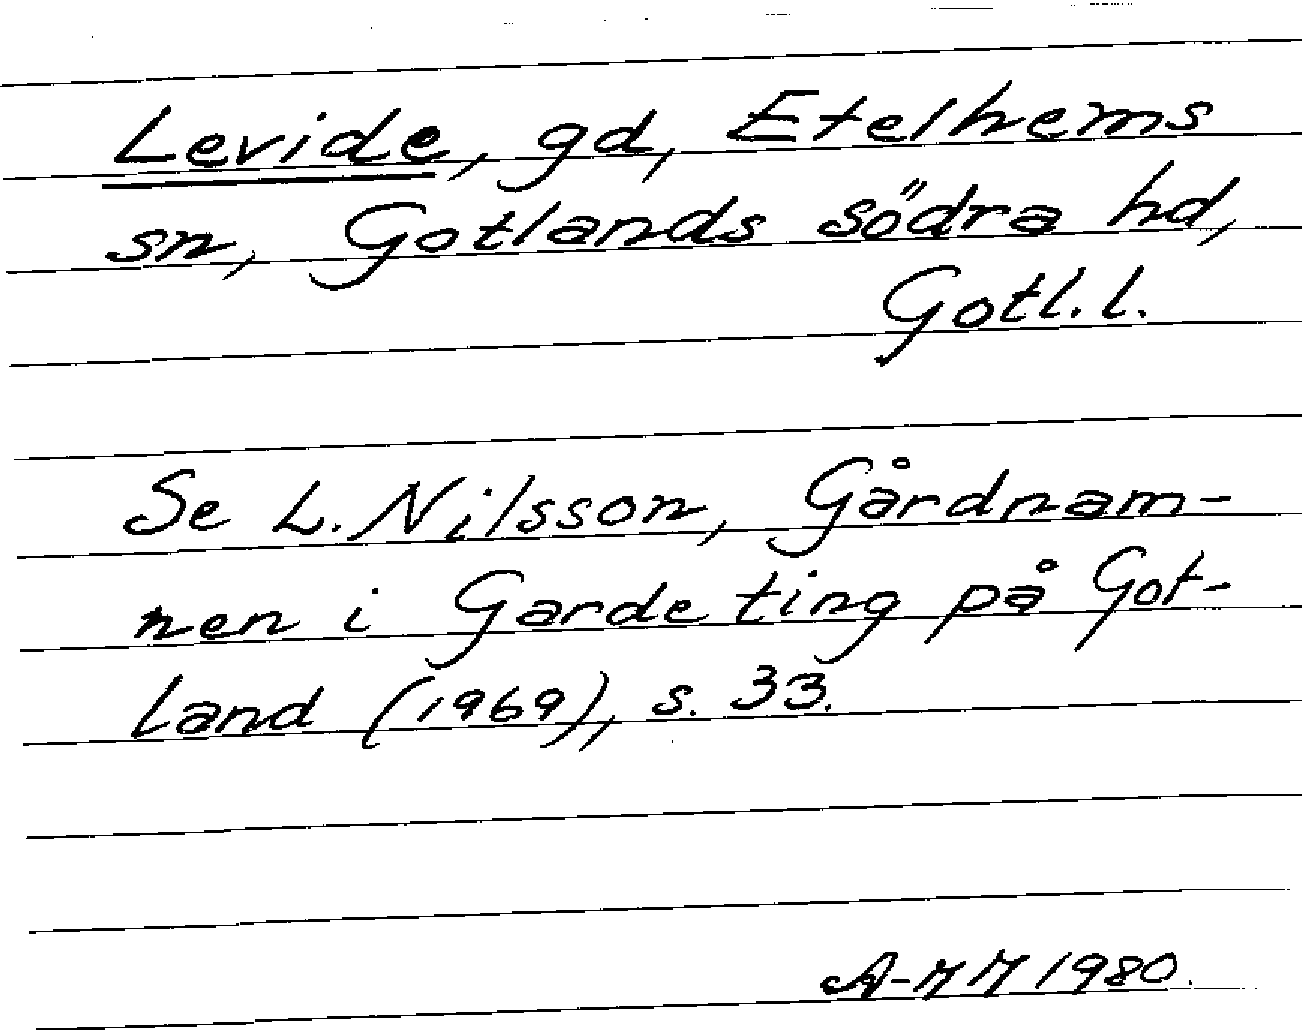 Levide, gd, Etelhems
sn, Gotlands södra hd,
Gotl. l.
Se L. Nilsson, Gårdnam-
nen i Garde ting på Got-
land (1969), s. 33.
A-M M 1980.